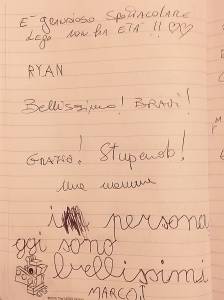 È grandioso spettacolare
Lego non ha ETÀ !!
RYAN
Bellissimo! BRAVI!
GRAZIE! Stupendo!
Una mamma
i persona
ggi sono
bellissimi
MARCO